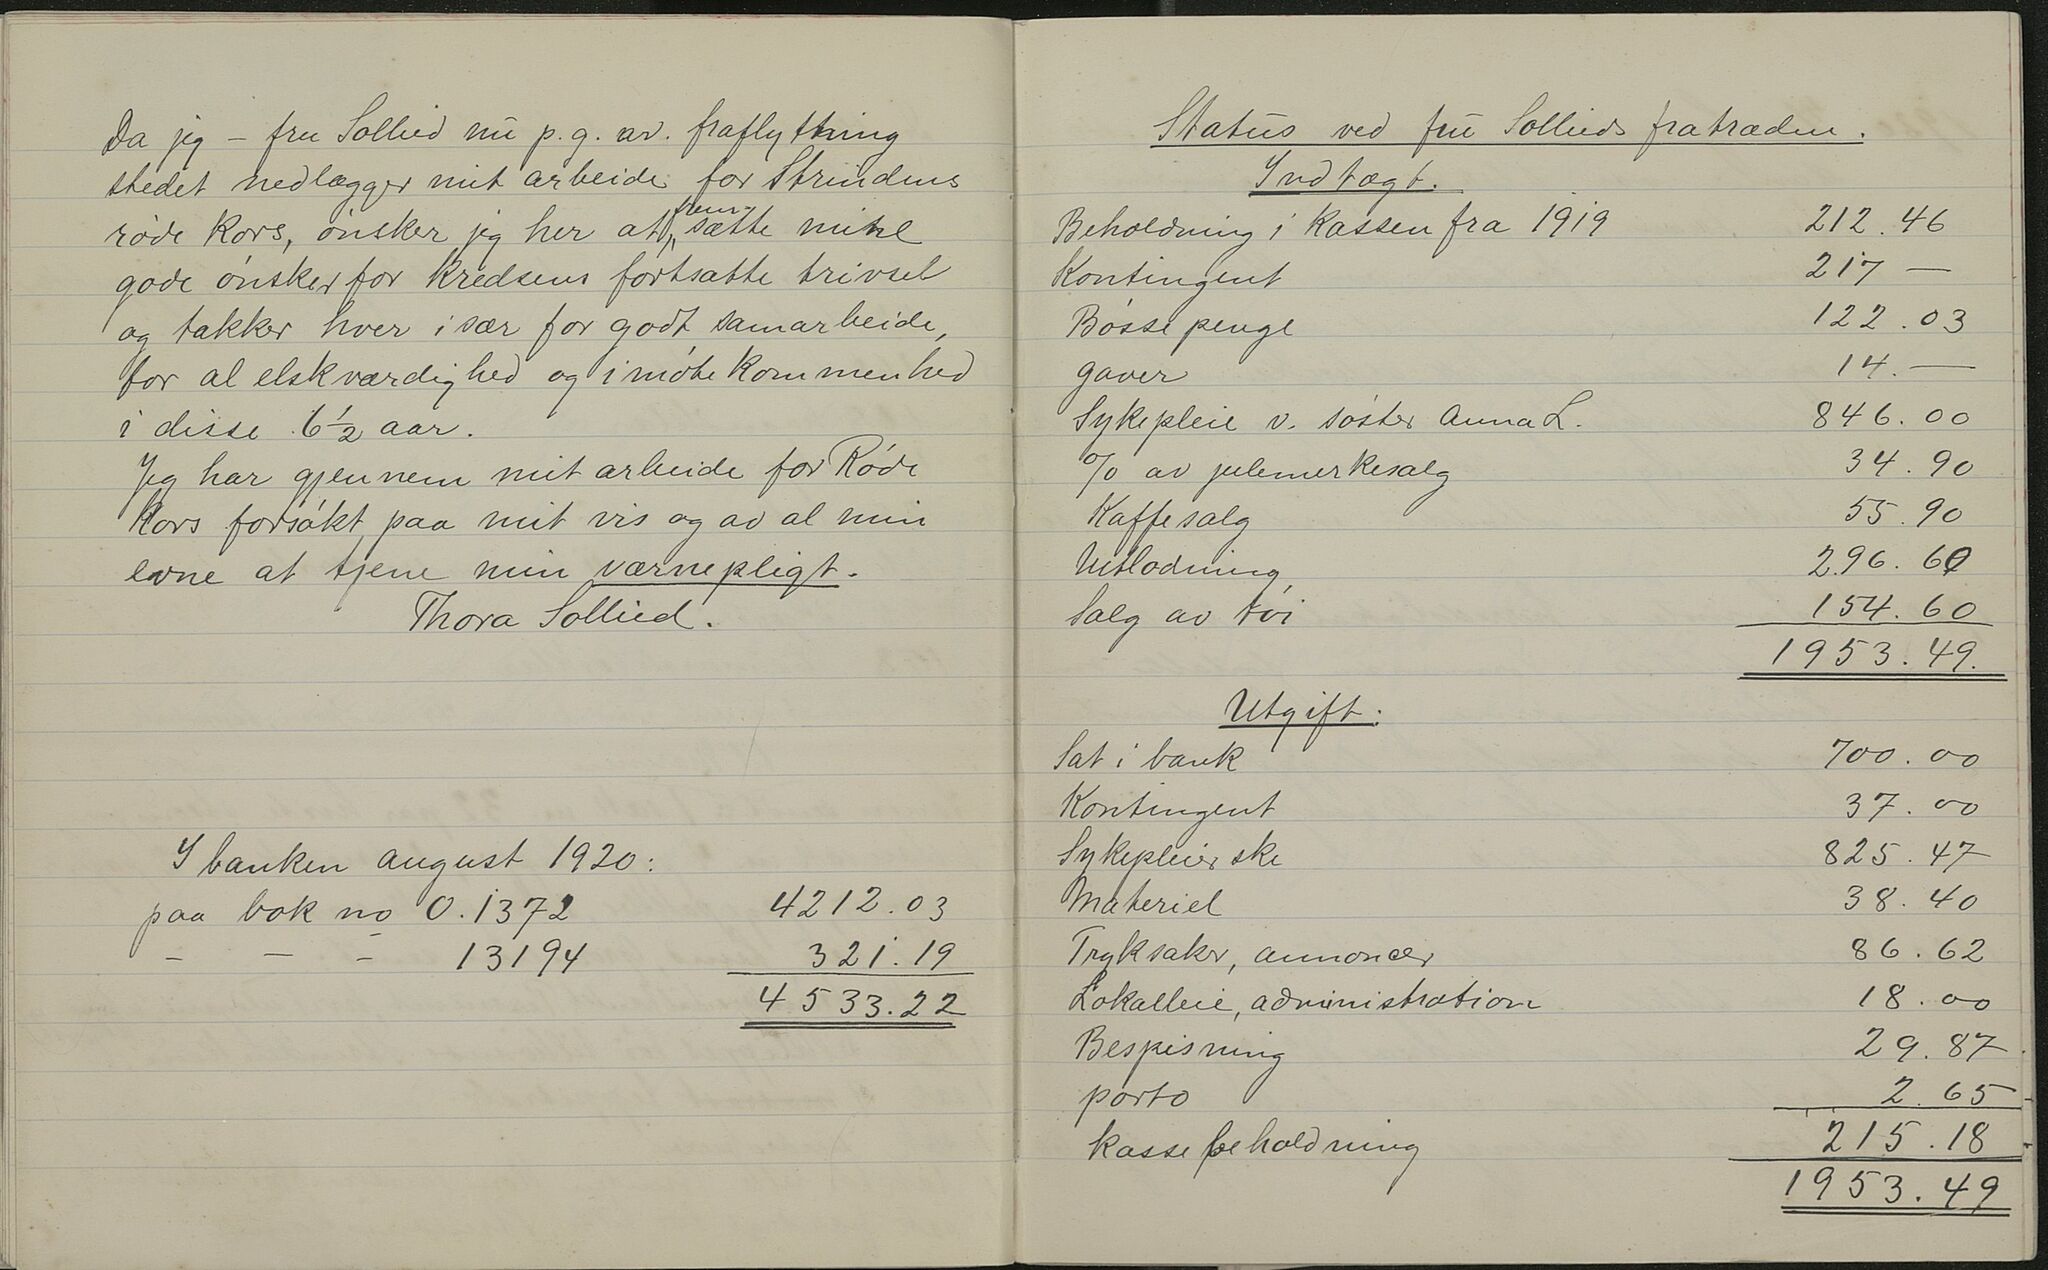 Da jeg – fru Sollied nu p.g.av. fraflytning
stedet nedlægger mit arbeide for Strindens
røde Kors, ønsker jeg her at frem-sætte mine
gode ønsker for kredsens fortsatte trivsel
og takker hver i sær for godt samarbeide,
for al elskværdighed og imøtekommenhed
i disse 6½ aar.
Jeg har gjennem mit arbeide for Røde
Kors forsøkt paa mit vis og av al min
evne at tjene min værnepligt.
Thora Sollied.
I banken august 1920:
paa bok no 0.1372 4212.03
– – – 13194 321.19
4533.22
Status ved fru Sollieds fratræden.
Indtægt.
Beholdning i kassen fra 1919 212.46
Kontingent 217 —
Bøssepenge 122.03
gaver 14. —
Sykepleie v. søster Anna L. 846.00
% av julemerkesalg 34.90
Kaffesalg 55.90
Utlodning 296.60
Salg av tøi 154.60
1953.49.
Utgift:
Sat i bank 700.00
Kontingent 37.00
Sykepleierske 825.47
Materiel 38.40
Tryksaker, annoncer 86.62
Lokalleie, administration 18.00
Bespisning 29.87
porto 2.65
kassebeholdning 215.18
1953.49